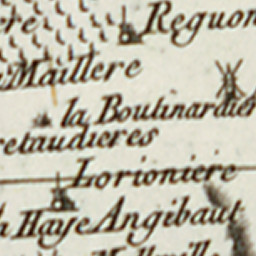 re Reguon
Maillere
la Boutinardier
retaudieres
Lorioniere
la Haye Angibaut